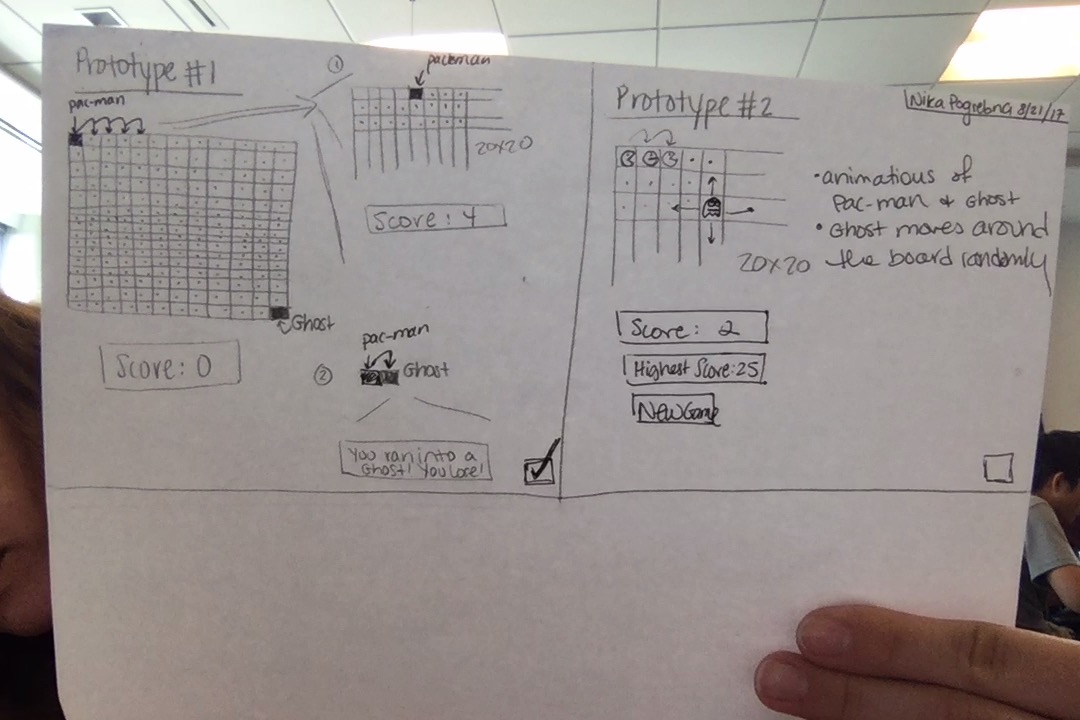 Prototype #1
pac-man
Ghost
Score: 0
①
packman
20x20
Score: 4
②
pac-man
Ghost
You ran into a
Ghost! You Lose!
Nika Pogrebna 8/21/17
Prototype #2
20x20
•animations of
Pac-man & Ghost
• Ghost moves around
the board randomly
Score: 2
Highest Score: 25
New Game